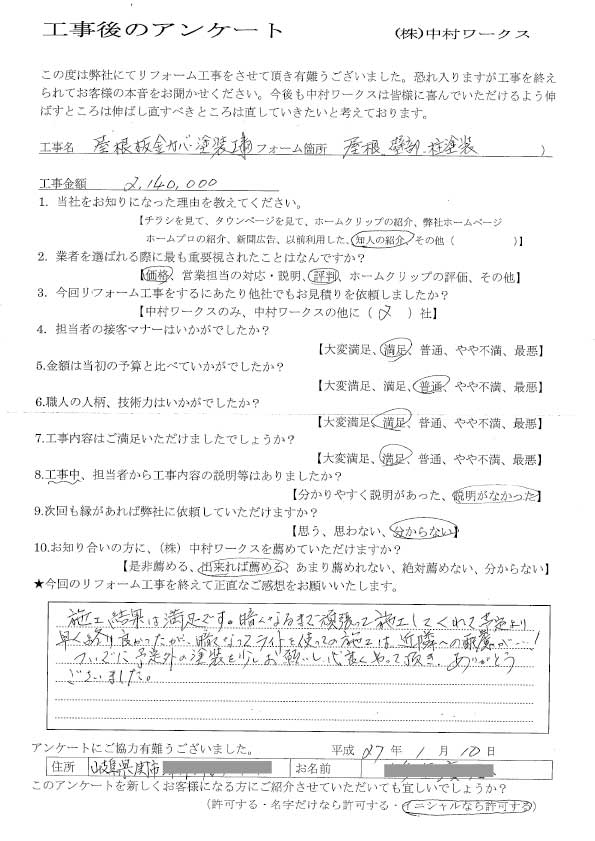 工事後のアンケート (株)中村ワークス
この度は弊社にてリフォーム工事をさせて頂き有難うございました。恐れ入りますが工事を終え
られてお客様の本音をお聞かせください。今後も中村ワークスは皆様に喜んでいただけるよう伸
ばすところは伸ばし直すべきところは直していきたいと考えております。
工事名 屋根板金カバー塗装工事 フォーム箇所 屋根、壁部、柱塗装 )
工事金額 2,140,000
1. 当社をお知りになった理由を教えてください。
【チラシを見て、タウンページを見て、ホームクリップの紹介、弊社ホームページ
ホームプロの紹介、新聞広告、以前利用した、知人の紹介、その他( )】
2. 業者を選ばれる際に最も重要視されたことはなんですか?
【価格、営業担当の対応・説明、評判、ホームクリップの評価、その他】
3. 今回リフォーム工事をするにあたり他社でもお見積りを依頼しましたか?
【中村ワークスのみ、中村ワークスの他に( 2 )社】
4. 担当者の接客マナーはいかがでしたか?
【大変満足、満足、普通、やや不満、最悪】
5.金額は当初の予算と比べていかがでしたか?
【大変満足、満足、普通、やや不満、最悪】
6.職人の人柄、技術力はいかがでしたか?
【大変満足、満足、普通、やや不満、最悪】
7.工事内容はご満足いただけましたでしょうか?
【大変満足、満足、普通、やや不満、最悪】
8.工事中、担当者から工事内容の説明等はありましたか?
【分かりやすく説明があった、説明がなかった】
9.次回も縁があれば弊社に依頼していただけますか?
【思う、思わない、分からない】
10.お知り合いの方に、(株)中村ワークスを薦めていただけますか?
【是非薦める、出来れば薦める、あまり薦めれない、絶対薦めない、分からない】
★今回のリフォーム工事を終えて正直なご感想をお願いいたします。
施工結果は満足です。暗くなるまで頑張って施工してくれて予定より
早く終り良かったが、暗くなってライトを使っての施工は、近隣への配慮が…!
ついでに予定外の塗装を少しお願いし、心良くやって頂き、ありがとう
ございました。
アンケートにご協力有難うございました。 平成 27 年 1 月 10 日
住所 岐阜県関市 お名前
このアンケートを新しくお客様になる方にご紹介させていただいても宜しいでしょうか?
(許可する・名字だけなら許可する・イニシャルなら許可する)